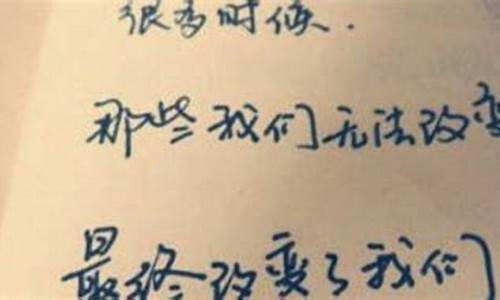 很多时候.
那些我们无法改变
最终改变了我们